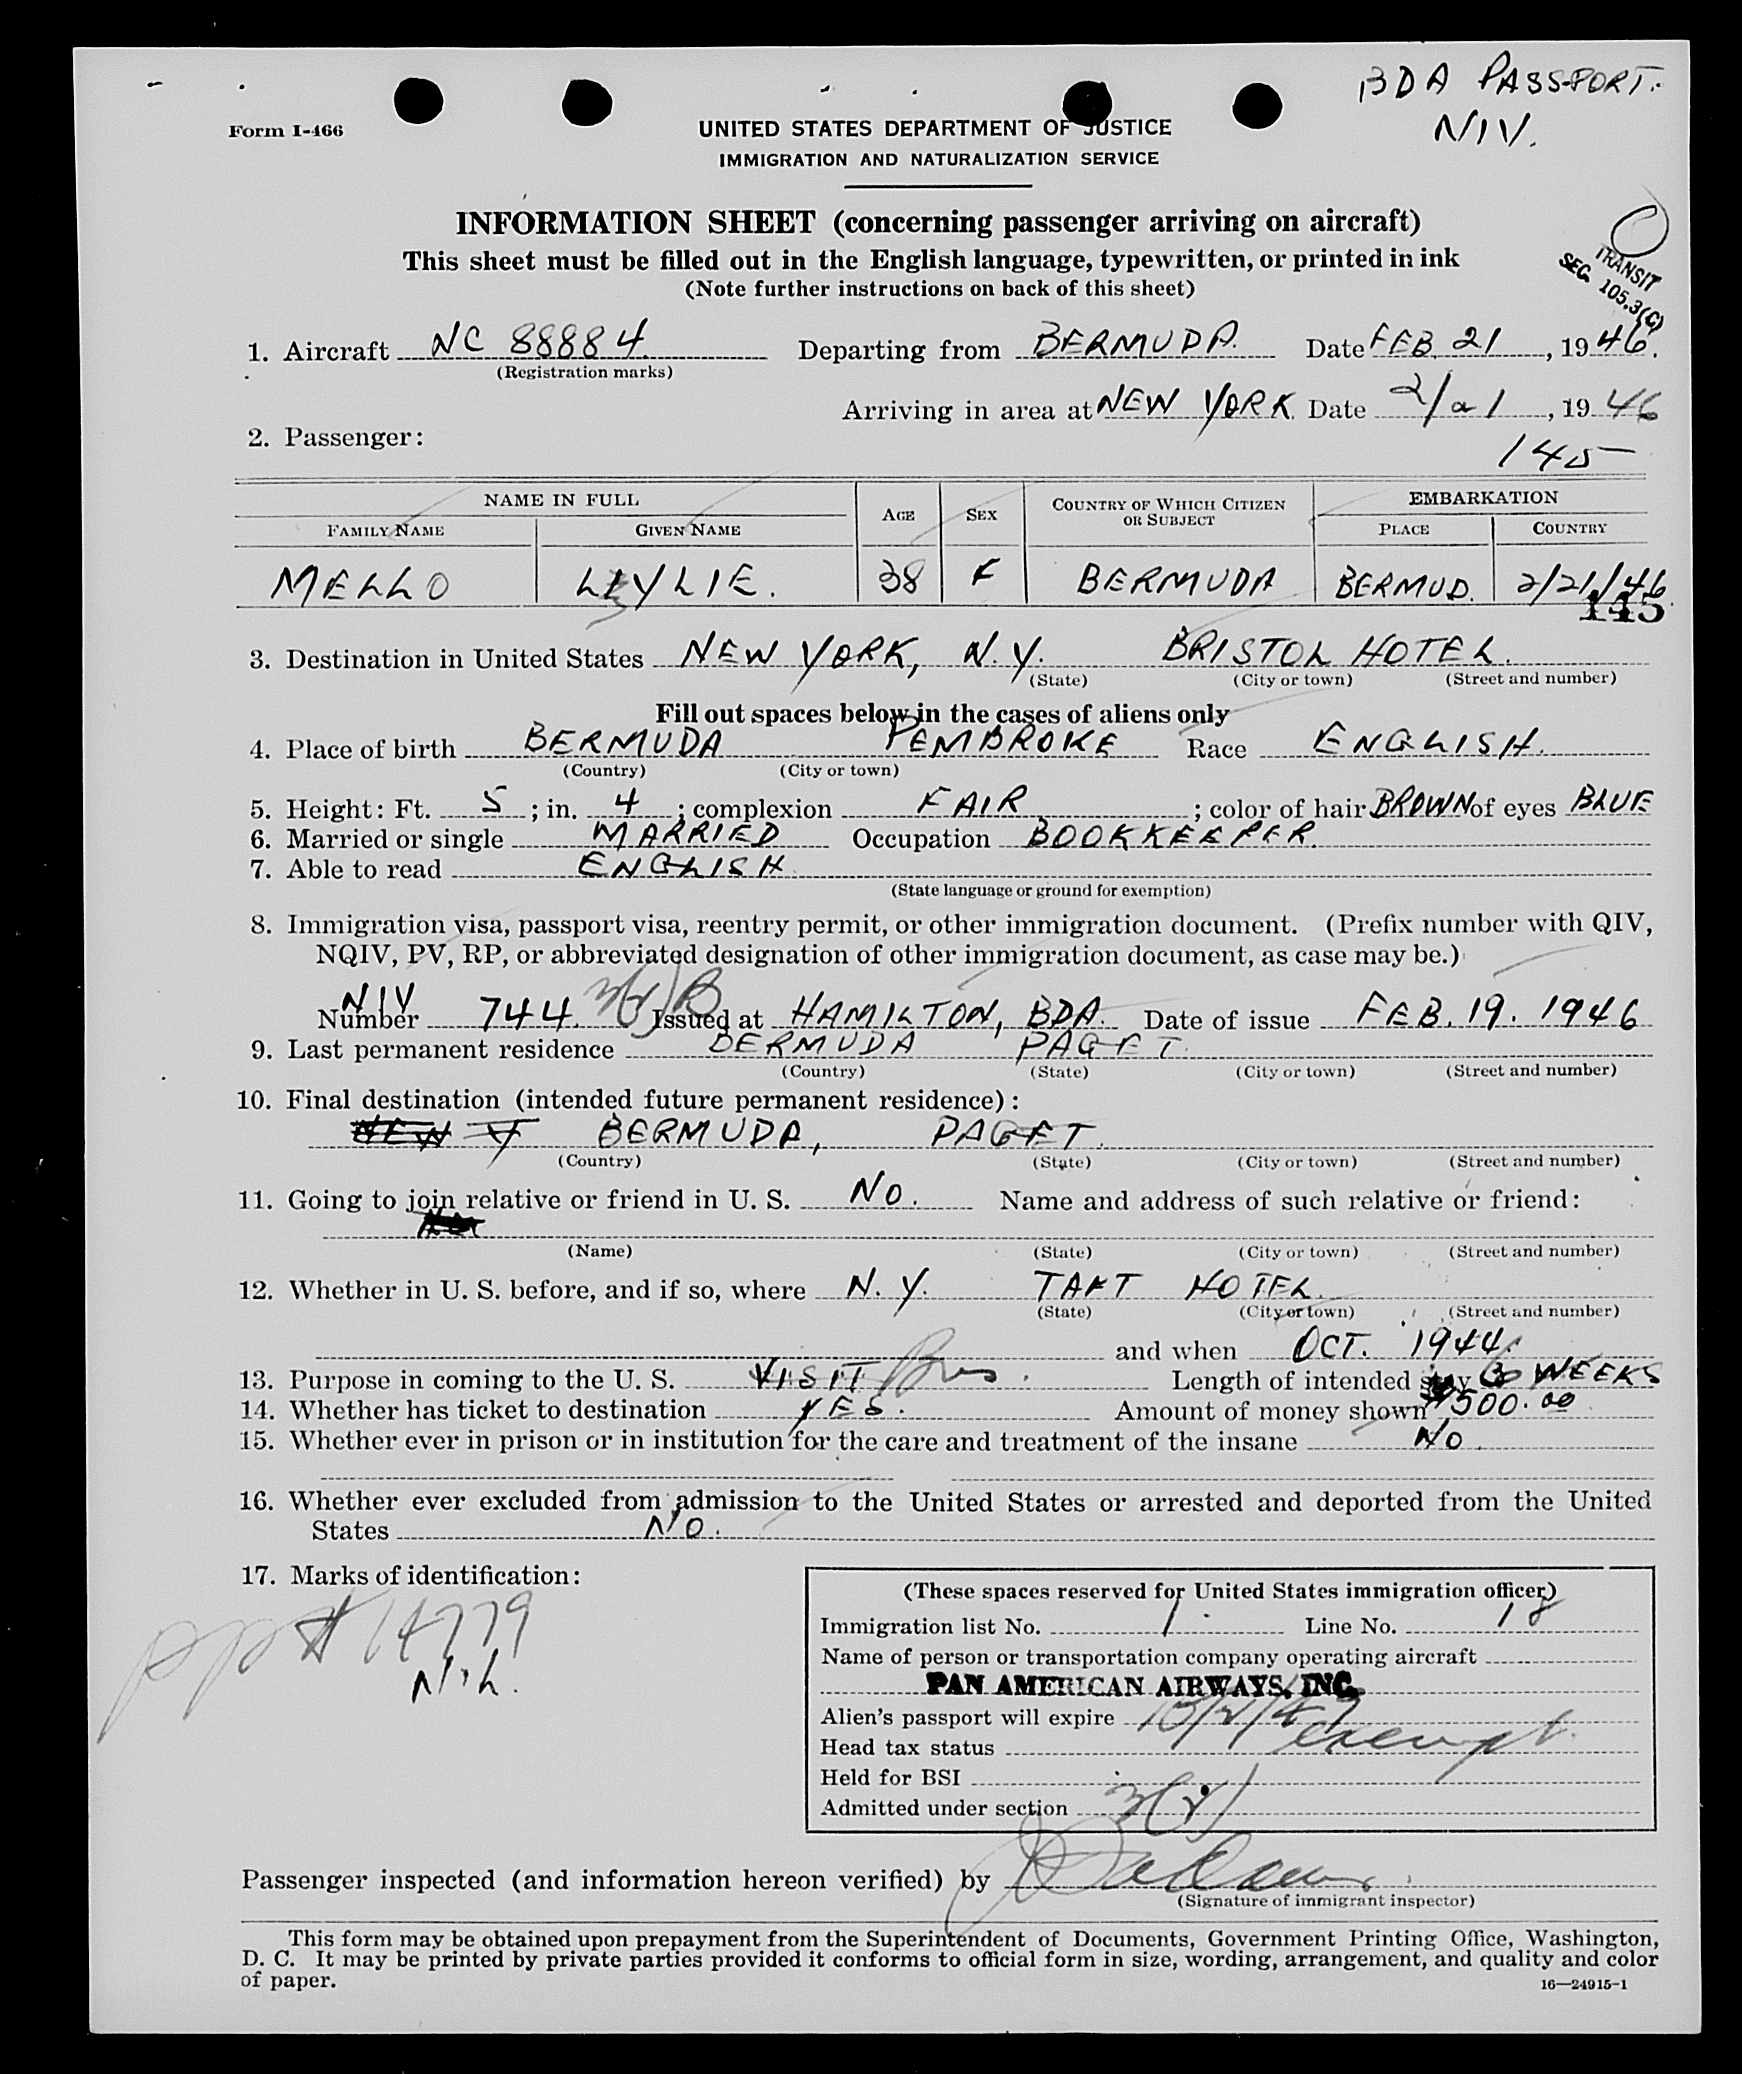 BDA PASSPORT.
NIV.
Form I-466
UNITED STATES DEPARTMENT OF JUSTICE
IMMIGRATION AND NATURALIZATION SERVICE
INFORMATION SHEET (concerning passenger arriving on aircraft)
This sheet must be filled out in the English language, typewritten, or printed in ink
(Note further instructions on back of this sheet)
TRANSIT
SEC. 105.3(C)
1. Aircraft NC 88884 Departing from BERMUDA. Date FEB. 21, 1946.
(Registration marks)
Arriving in area at NEW YORK. Date 2/21, 1946
2. Passenger:
145
NAME IN FULL AGE SEX COUNTRY OF WHICH CITIZEN OR SUBJECT EMBARKATION
FAMILY NAME GIVEN NAME PLACE COUNTRY
MELLO 38 F BERMUDA BERMUD. 2/21/46
145
3. Destination in United States NEW YORK, N.Y. BRISTOL HOTEL.
(State) (City or town) (Street and number)
Fill out spaces below in the cases of aliens only
4. Place of birth BERMUDA PEMBROKE Race ENGLISH.
(Country) (City or town)
5. Height: Ft. 5; in. 4; complexion FAIR; color of hair BROWN of eyes BLUE
6. Married or single MARRIED Occupation BOOKKEEPER.
7. Able to read ENGLISH
(State language or ground for exemption)
8. Immigration visa, passport visa, reentry permit, or other immigration document. (Prefix number with QIV,
NQIV, PV, RP, or abbreviated designation of other immigration document, as case may be.)
NIV
Number 744. 3(2)B Issued at HAMILTON, BDA. Date of issue FEB. 19. 1946
9. Last permanent residence BERMUDA PAGET.
(Country) (State) (City or town) (Street and number)
10. Final destination (intended future permanent residence):
NEW Y BERMUDA, PAGET.
(Country) (State) (City or town) (Street and number)
11. Going to join relative or friend in U. S. NO. Name and address of such relative or friend:
(Name) (State) (City or town) (Street and number)
12. Whether in U. S. before, and if so, where N.Y. TAFT HOTEL.
(State) (City or town) (Street and number)
and when OCT. 1944.
13. Purpose in coming to the U. S. VISIT Bus. Length of intended stay 3 WEEKS
14. Whether has ticket to destination YES. Amount of money shown $500.00
15. Whether ever in prison or in institution for the care and treatment of the insane NO.
16. Whether ever excluded from admission to the United States or arrested and deported from the United
States NO.
17. Marks of identification:
pp # 14779
Nil.
(These spaces reserved for United States immigration officer)
Immigration list No. 1 Line No. 18
Name of person or transportation company operating aircraft
PAN AMERICAN AIRWAYS, INC.
Alien's passport will expire
Head tax status exempt.
Held for BSI
Admitted under section 3(2)
Passenger inspected (and information hereon verified) by
(Signature of immigrant inspector)
This form may be obtained upon prepayment from the Superintendent of Documents, Government Printing Office, Washington,
D. C. It may be printed by private parties provided it conforms to official form in size, wording, arrangement, and quality and color
of paper.
16—24915-1